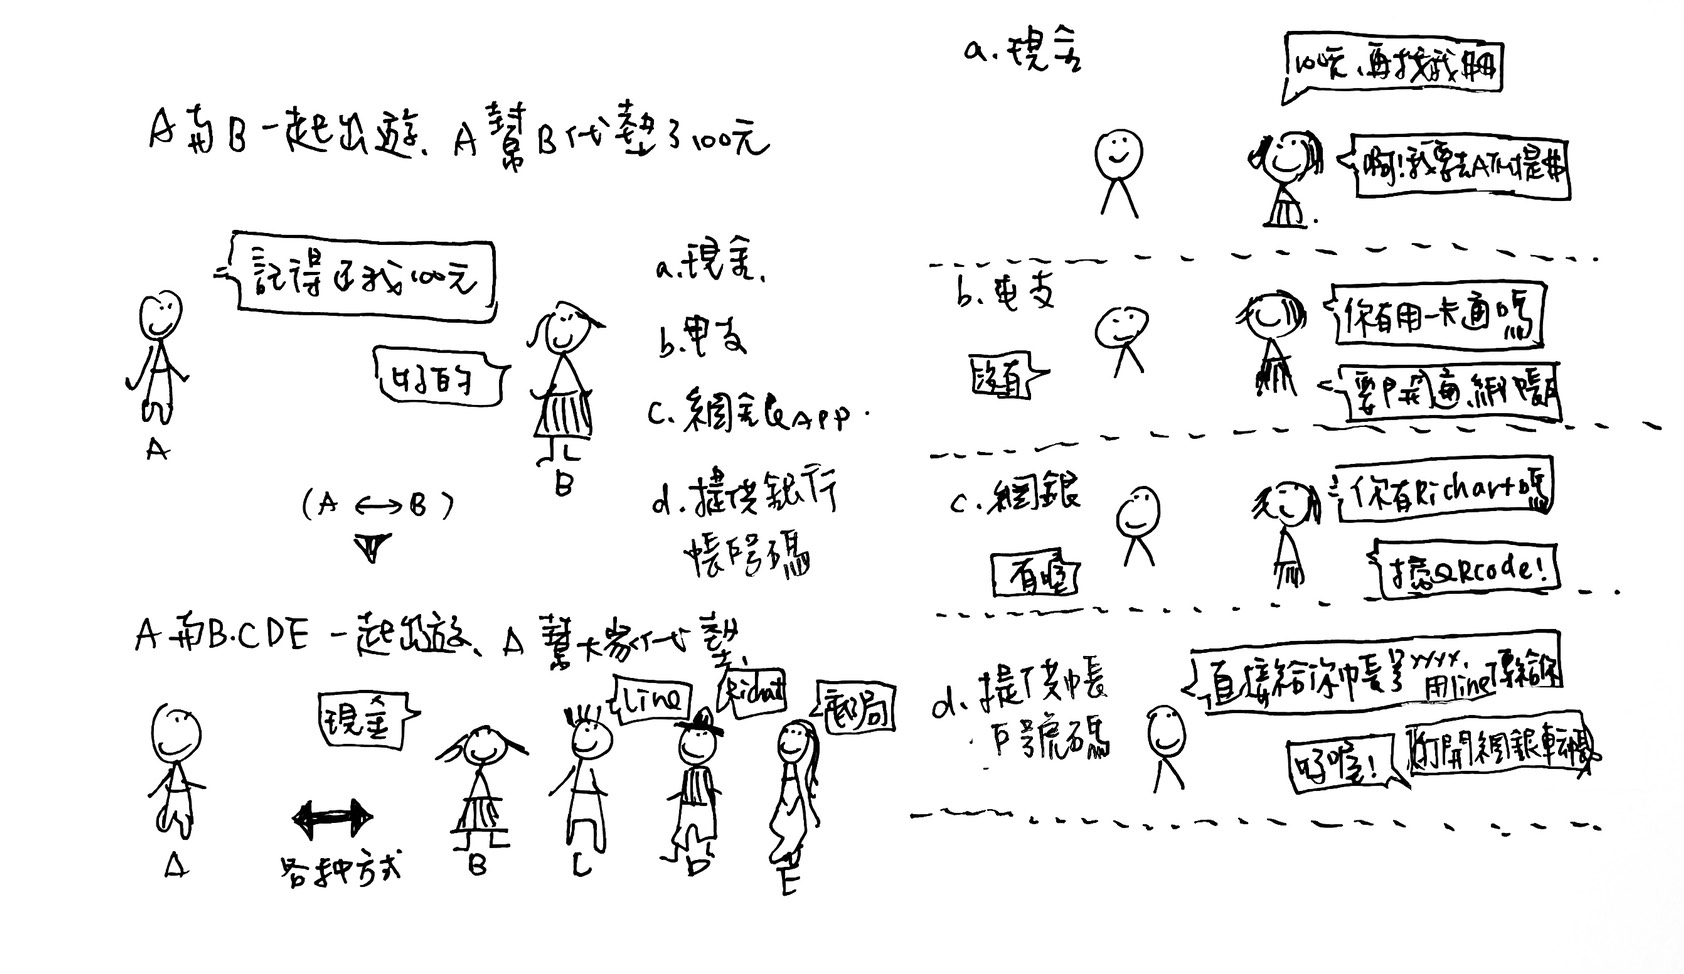 A和B一起出遊、A幫B代墊了100元
記得还我100元
好的
A
B
a.現金.
b.電支
c.網銀APP.
d.提供銀行
帳戶號碼
(A ↔ B)
A和B.CDE一起出遊、A幫大家代墊
現金
Line
Richart
郵局
A
各种方式
B
C
D
E
a.現金
100元、再找我
啊!我要去ATM提
b.电支
你有用一卡通嗎
没有
要開通
c.網銀
你有Richart嗎
有喔
掃QRcode!
d.提供帳
戶號碼
直接給你帳號xxxx.
用line傳給你
好喔!
打開網銀轉帳